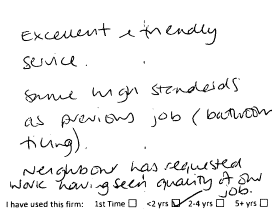 Excellent & friendly
service.
Same high standards
as previous job (bathroom
tiling).
Neighbour has requested
work having seen quality of our
job.
I have used this firm: 1st Time ☐ <2 yrs ☑ 2-4 yrs ☐ 5+ yrs ☐